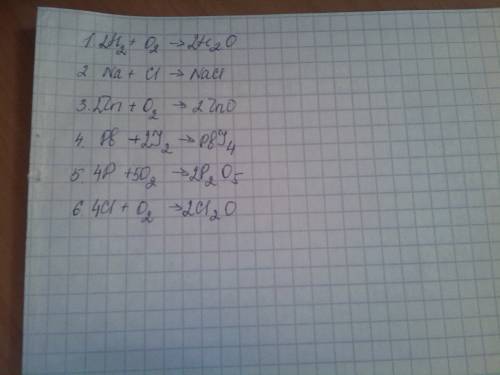 1. 2H₂ + O₂ → 2H₂O
2 Na + Cl → NaCl
3. 2Zn + O₂ → 2ZnO
4. Pb + 2J₂ → PbJ₄
5 4P + 5O₂ → 2P₂O₅
6 4Cl + O₂ → 2Cl₂O